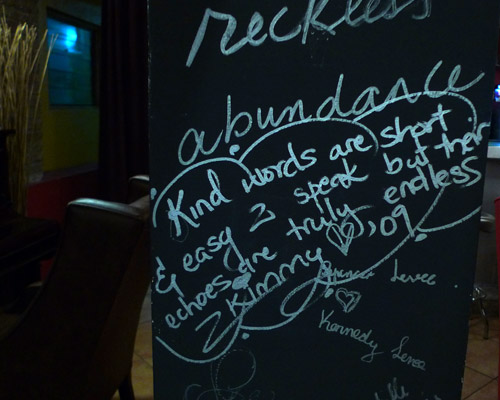 reckless
abundance
Kind words are short
& easy 2 speak but their
echoes are truly endless
2 Kimmy ,09
Spencer Levee
Kennedy Levee